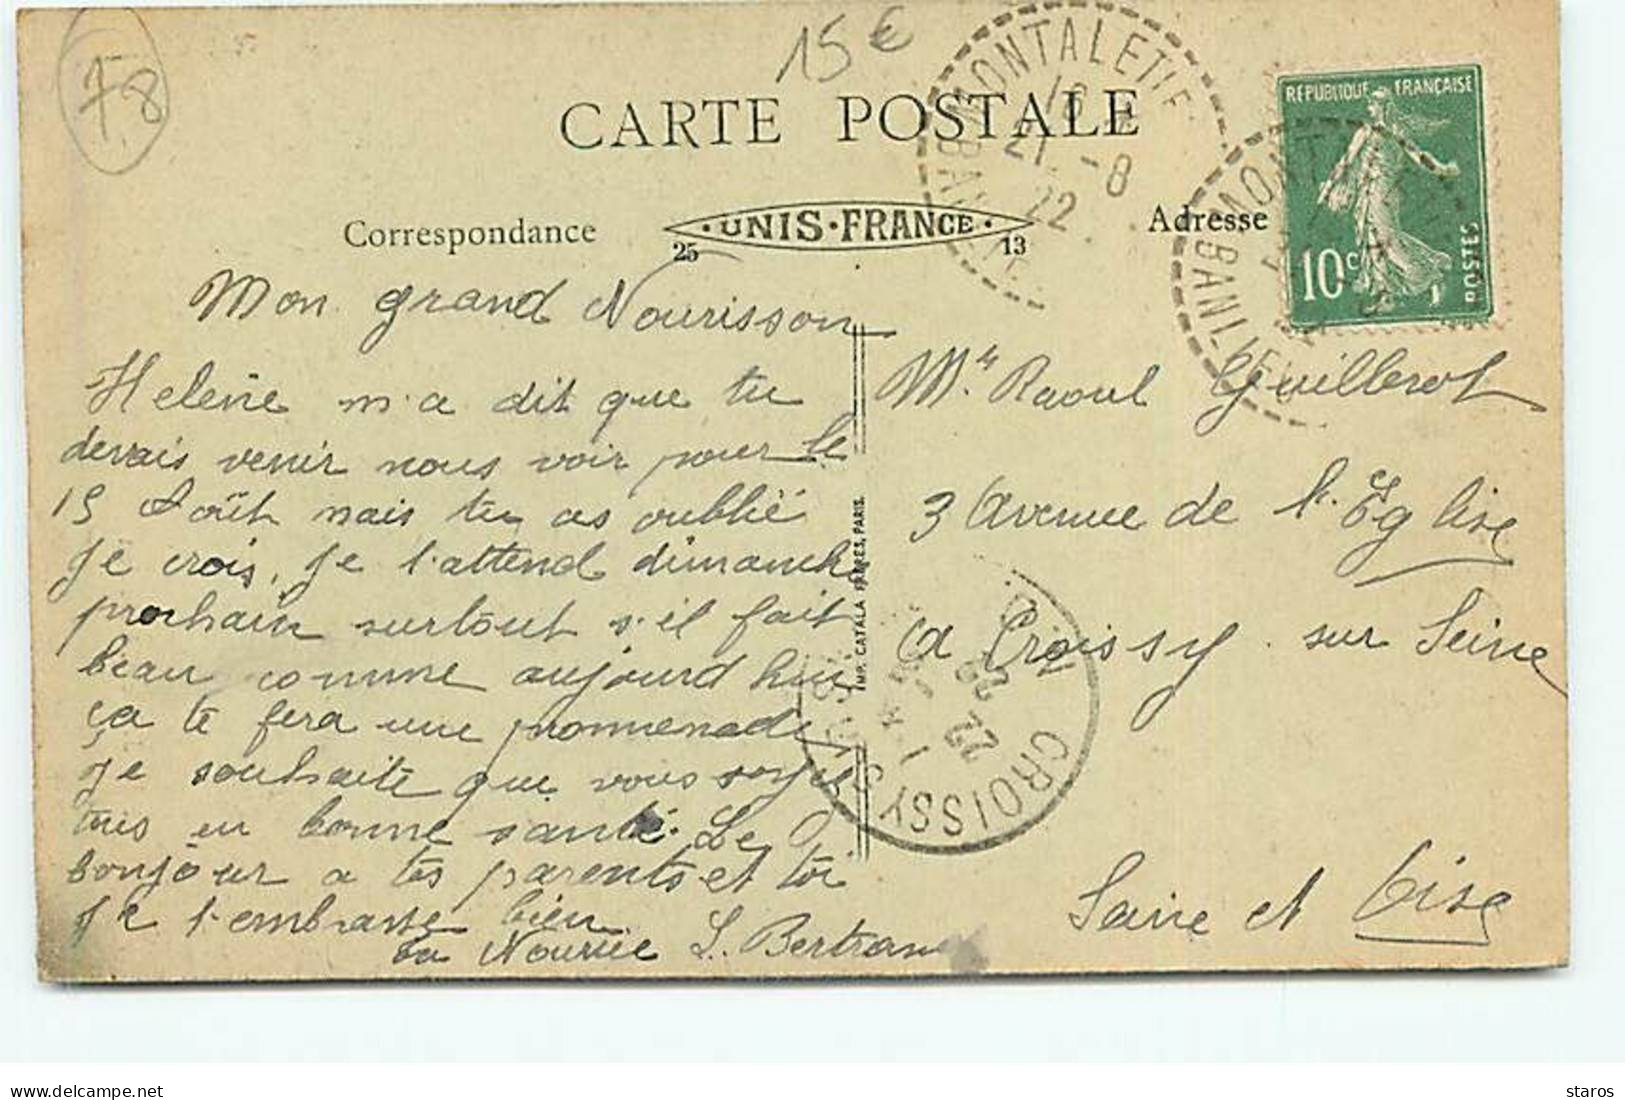 F8
15€
CARTE POSTALE
MONTALETIE
BANLIEUE
16
21 -8
22
REPUBLIQUE FRANÇAISE
10c
POSTES
Correspondance
UNIS-FRANCE
25 13
Adresse
Mon grand Nourisson
Helène m'a dit que tu
devais venir nous voir pour le
15 Août mais tu as oublié
je crois, je t'attend dimanche
prochain surtout s'il fait
beau comme aujourd hui
ça te fera une promenade
je souhaite que vous soyez
tous en bonne santé. Le
bonjour a tes parents et toi
je t'embrasse bien
ta Nourice S. Bertrand
IMP. CATALA FRÈRES, PARIS.
Mr Raoul Guillerot
3 Avenue de l'Eglise
a Croissy sur Seine
Seine et Oise
CROISSY S
22
staros